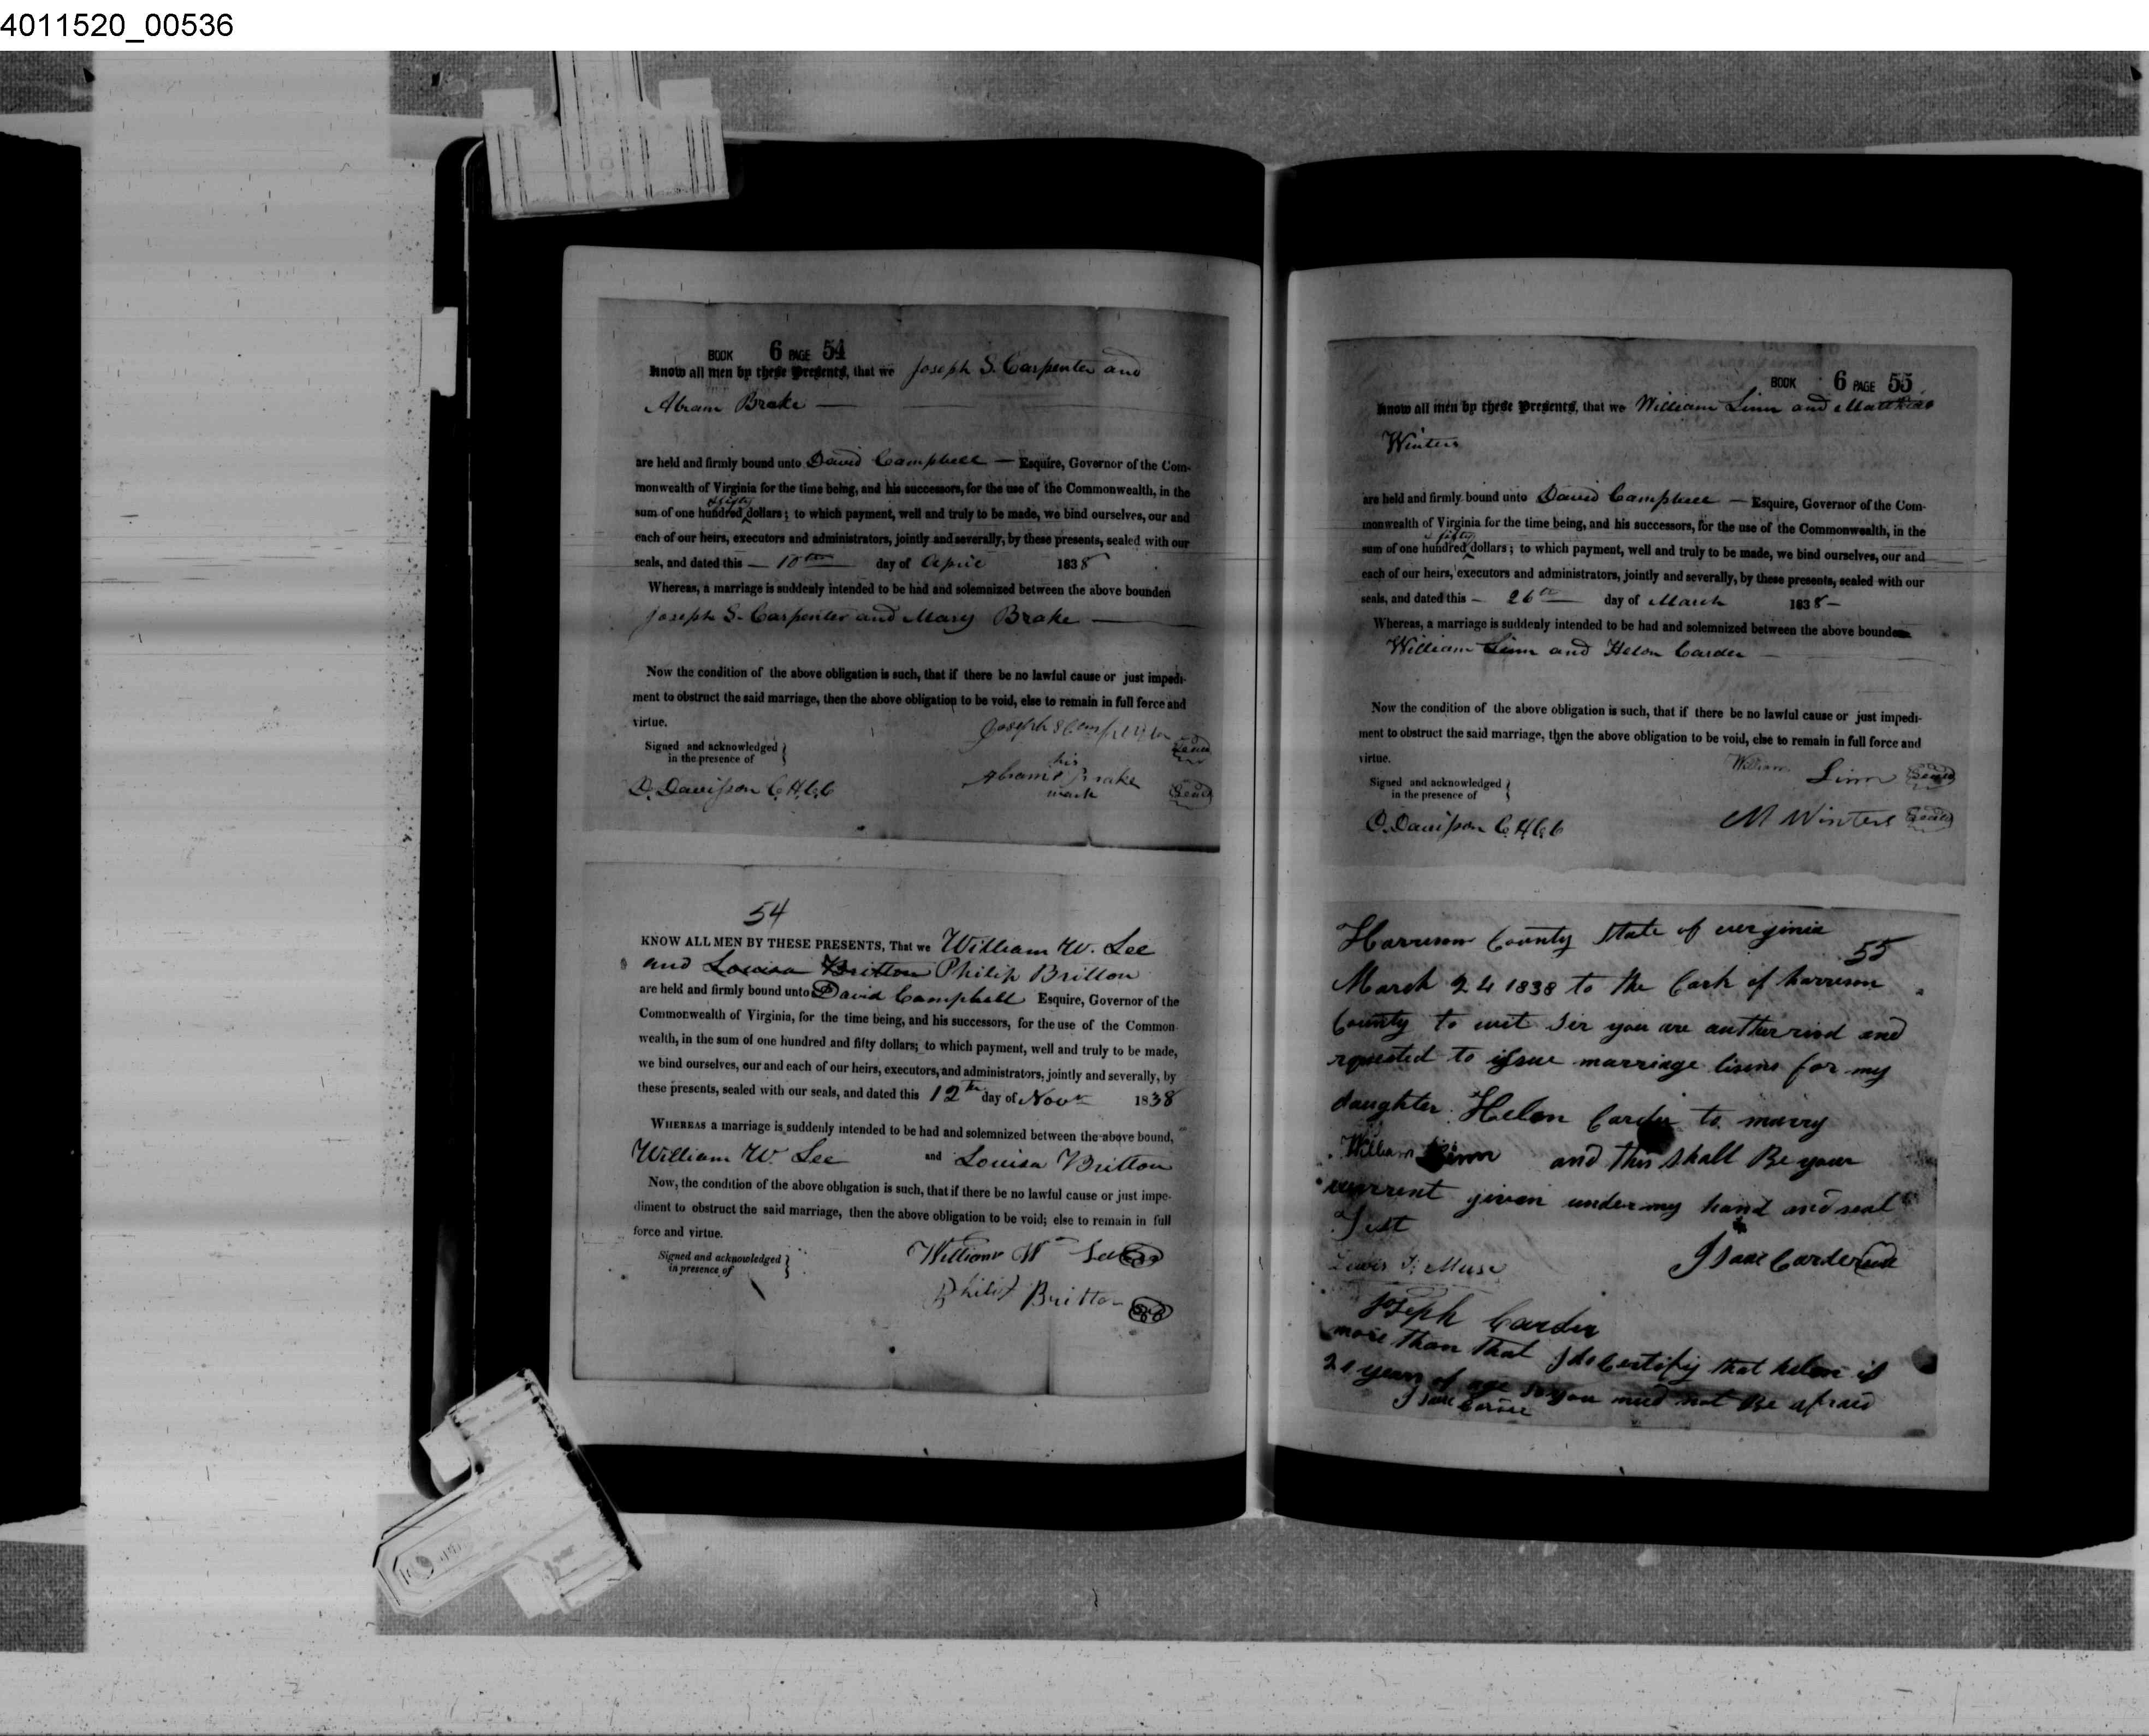 4011520_00536
BOOK 6 PAGE 54
Know all men by these Presents, that we Joseph S. Carpenter and
Abram Brake
are held and firmly bound unto David Campbell — Esquire, Governor of the Com-
monwealth of Virginia for the time being, and his successors, for the use of the Commonwealth, in the
& fifty
sum of one hundred dollars; to which payment, well and truly to be made, we bind ourselves, our and
each of our heirs, executors and administrators, jointly and severally, by these presents, sealed with our
seals, and dated this — 10th — day of April 1838
Whereas, a marriage is suddenly intended to be had and solemnized between the above bounden
Joseph S. Carpenter and Mary Brake —
Now the condition of the above obligation is such, that if there be no lawful cause or just impedi-
ment to obstruct the said marriage, then the above obligation to be void, else to remain in full force and
virtue.
Joseph S Carpenter Seal
Signed and acknowledged
in the presence of
his
Abram Brake Seal
mark
D. Davisson C.H.C.C
54
KNOW ALL MEN BY THESE PRESENTS, That we William W. Lee
and Louisa Britton Philip Britton
are held and firmly bound unto David Campbell Esquire, Governor of the
Commonwealth of Virginia, for the time being, and his successors, for the use of the Common-
wealth, in the sum of one hundred and fifty dollars; to which payment, well and truly to be made,
we bind ourselves, our and each of our heirs, executors, and administrators, jointly and severally, by
these presents, sealed with our seals, and dated this 12th day of Novr 1838
WHEREAS a marriage is suddenly intended to be had and solemnized between the above bound,
William W. Lee and Louisa Britton
Now, the condition of the above obligation is such, that if there be no lawful cause or just impe-
diment to obstruct the said marriage, then the above obligation to be void; else to remain in full
force and virtue.
Signed and acknowledged
in presence of
William W Lee
Philip Britton
BOOK 6 PAGE 55
Know all men by these Presents, that we William Linn and Matthias
Winters
are held and firmly bound unto David Campbell — Esquire, Governor of the Com-
monwealth of Virginia for the time being, and his successors, for the use of the Commonwealth, in the
& fifty
sum of one hundred dollars; to which payment, well and truly to be made, we bind ourselves, our and
each of our heirs, executors and administrators, jointly and severally, by these presents, sealed with our
seals, and dated this — 26th — day of March 1838 —
Whereas, a marriage is suddenly intended to be had and solemnized between the above bounden
William Linn and Helon Carder —
Now the condition of the above obligation is such, that if there be no lawful cause or just impedi-
ment to obstruct the said marriage, then the above obligation to be void, else to remain in full force and
virtue.
William Linn Seal
Signed and acknowledged
in the presence of
D. Davisson C.H.C.C
M Winters Seal
Harrison County State of verginia
55
March 24 1838 to the Cark of harrison
County to wit Sir you are autherisd and
rquested to issue marriage lisens for my
daughter Helon Carder to marry
William Linn and this shall Be your
warrent given under my hand and seal
Test
Lewis Muse
Isaac Carder seal
Joseph Carder
more than that I do Certify that helon is
21 years of age so you need not Be afraid
Isaac Carder